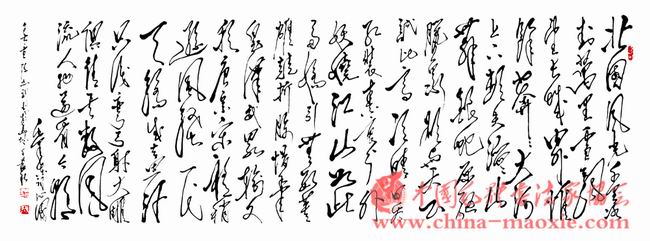 北国风光千里冰
封万里雪飘
望长城内外惟
馀莽莽大河
上下顿失滔滔山
舞银蛇原驰
腊象欲与天公
试比高须晴日看
红装素裹分外
妖娆江山如此
多娇引无数英
雄竞折腰惜秦
皇汉武略输文
采唐宗宋祖稍
逊风骚一代
天骄成吉思汗
只识弯弓射大雕
俱往矣数风
流人物还看今朝
中国毛体书法家协会
www.china-maoxie.com